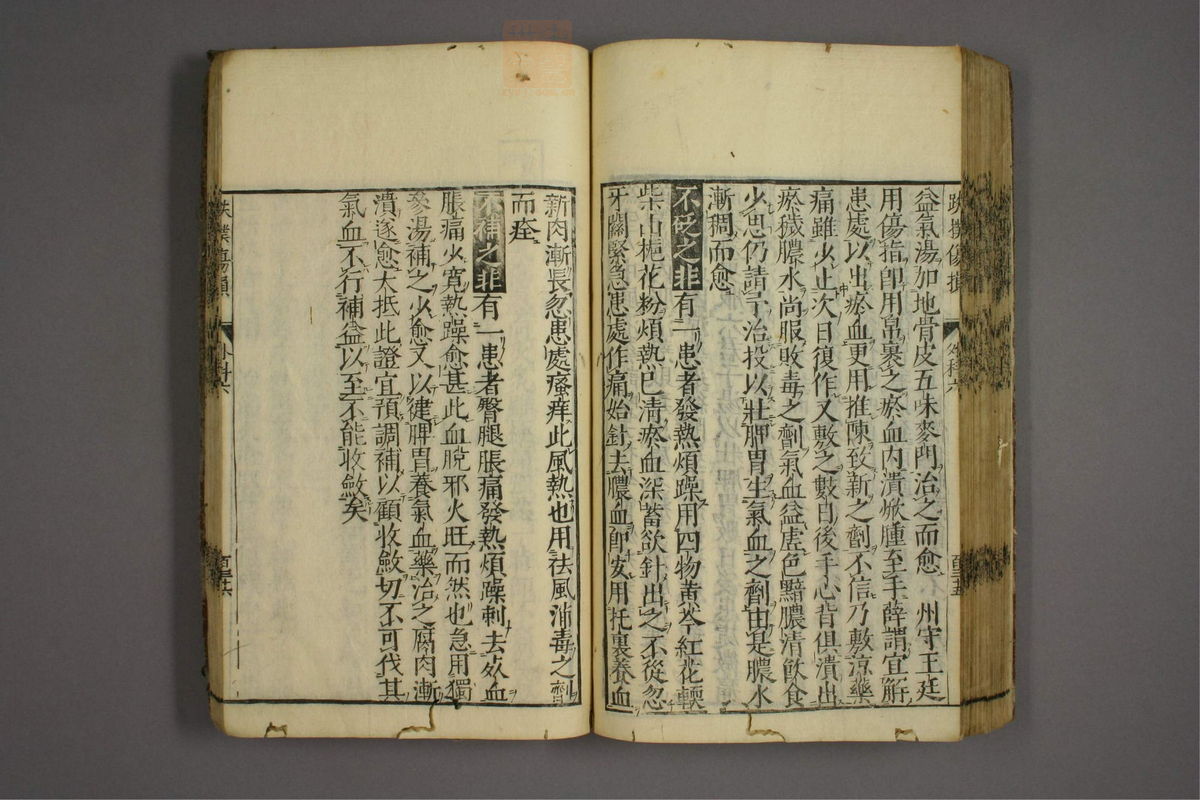 跌撲傷損
外科六
百三十五
益氣湯加地骨皮五味麥門治之而愈　州守王廷
用傷指即用帛裹之瘀血內潰焮腫至手薛謂宜解
患處以出瘀血更用推陳致新之劑不信乃敷涼藥
痛雖少止次日復作又敷之數日後手心背俱潰出
瘀穢膿水尚服敗毒之劑氣血益虛色黯膿清飲食
少思仍請予治投以壯脾胃生氣血之劑由是膿水
漸稠而愈
不砭之非有一患者發熱煩躁用四物黃芩紅花軟
柴山梔花粉煩熱已清瘀血深蓄欲針出之不從忽
牙關緊急患處作痛始針去膿血即安用托裏養血
新肉漸長忽患處瘙痒此風熱也用祛風消毒之劑
而痊
不補之非有一患者臀腿脹痛發熱煩躁刺去死血
脹痛少寬熱躁愈甚此血脫邪火旺而然也急用獨
參湯補之少愈又以健脾胃養氣血藥治之腐肉漸
潰遂愈大抵此證宜預調補以顧收斂切不可伐其
氣血不行補益以至不能收斂矣
跌撲傷損
外科六
百三十六